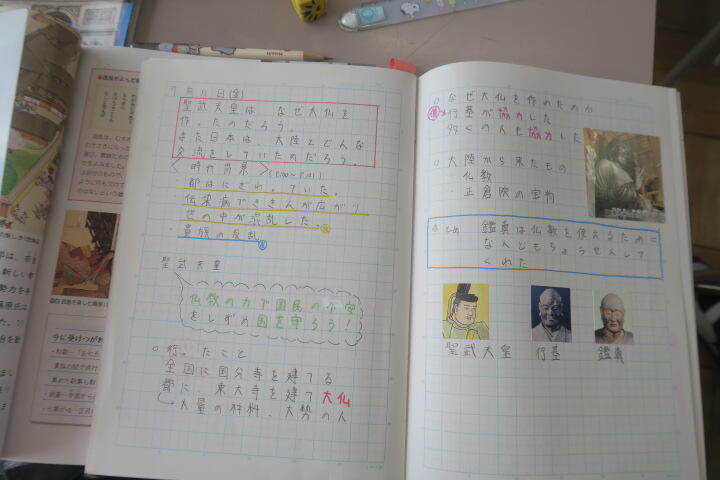 7月11日(金)
聖武天皇は、なぜ大仏を
作ったのだろう。
また日本は、大陸とどんな
交流をしていたのだろう。
<時代背景>
・都はにぎわっていた。
・伝染病でききんが広がり
世の中が混乱した。
・貴族の反乱
聖武天皇
仏教の力で国民の不安
をしずめ国を守ろう!
○行ったこと
全国に国分寺を建てる
都に、東大寺を建て大仏
→大量の材料、大勢の人
○なぜ大仏を作れたのか
僧 行基が協力した
多くの人も協力した
○大陸から来たもの
・仏教
・正倉院の宝物
まとめ 鑑真は仏教を伝えるために
なんどもちょうせんして
くれた
聖武天皇 行基 鑑真
今に受けつがれ